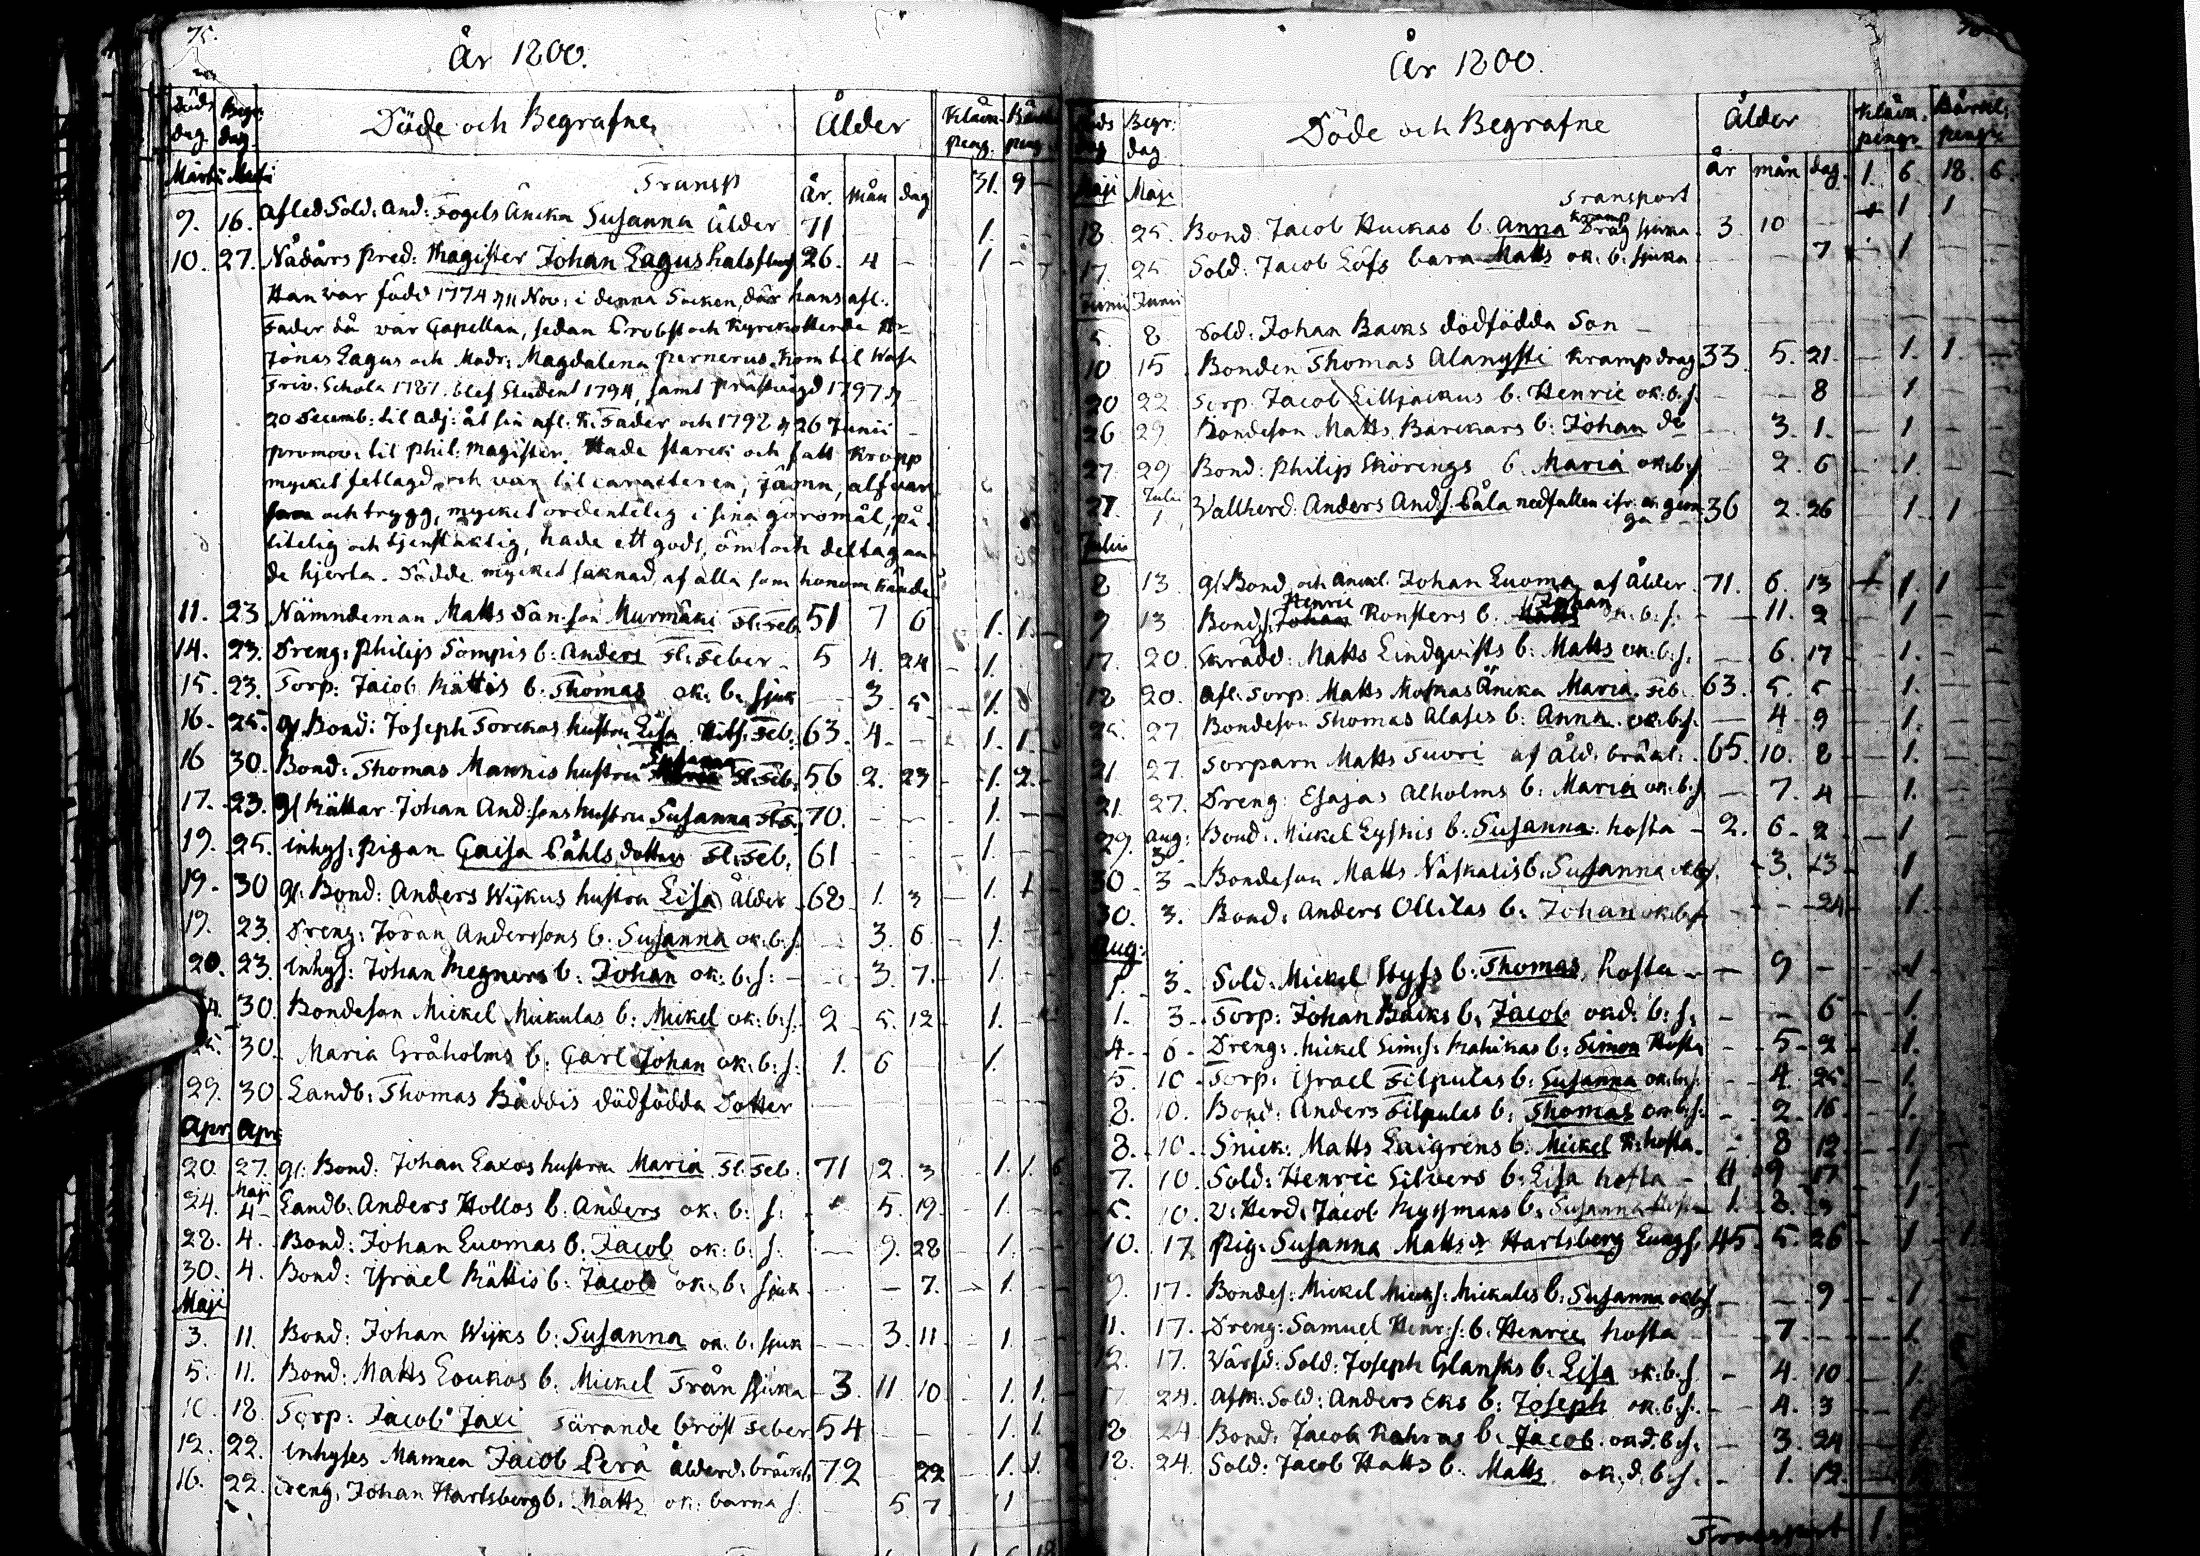 75.
År 1800.
Döds dag. Begr: dag. Döde och Begrafne Ålder Kläm. peng. peng.
Martii Martii Transp År. Mån dag 31. 9 –
9. 16. Afled. Sold: And: Fogels Änka Susanna Ålder 71 1.
10. 27. Nådårs Pred: Magister Johan Lagus halsfluss 26. 4 – 1 –
Han var född 1774 d 11 Nov: i denna Socken, där hans afl:
Fader då var Capellan, sedan Probst och Kyrckoherde Hr
Jonas Lagus och Modr: Magdalena Pernerus. Kom til Wasa
Triv. Schola 1787. blef Student 1794, samt prästvigd 1797 d
20 Decemb: til Adj: åt sin afl. K. Fader och 1798 d 26 Junii
promov: til Phil: Magister. Hade starck och satt kropp
mycket fetlagd och var til caracteren, jämn, alfvar
sam och trygg, mycket ordentelig i sina göromål, på
litelig och tjenstaktig, hade ett godt, ömt och deltagan
de hjerta. Dödde mycket saknad, af alla som honom kände
11. 23 Nämndeman Matts Dan:son Murmäki Fl: Feb. 51 7 6 1. 1.
14. 23. Dreng: Philip Sompis b: Anders Fl: Feber 5 4. 24 1.
15. 23. Torp: Jacob Kättis b: Thomas ok: b: sjuk 3. 5 1.
16. 25. Gl. Bond: Joseph Torckas hustru Lisa Hits: Feb. 63. 4. 1. 1.
16 30. Bond: Thomas Mannis hustru Susanna Fl: Feb. 56 2. 23 1. 2.
17. 23. Gl Johan And:sons hustru Susanna 70. 1.
19. 25. Inhys: Pigan Caisa Påhls dotter Fl: Feb: 61 1.
19. 30 Gl. Bond: Anders Wijkus hustru Lisa Ålder 68 1. 3 1. 1
19. 23. Dreng: Jöran Anderssons b: Susanna ok: b: s: 3. 6. 1.
20. 23. Inhys: Johan Megners b: Johan ok: b: s: 3 7. 1.
24. 30. Bondeson Mickel Mickulas b: Mickel ok: b: s: 2 5. 12 1.
25. 30. Maria Gråholms b: Carl Johan ok: b: s: 1. 6 1.
29. 30 Landb: Thomas Båddis dödfödda Dotter
Apr Apr
20. 27. Gl: Bond: Johan Laxos hustru Maria Fl: Feb. 71 2. 3 1. 1. 6
24. Maji 4 Landb. Anders Hollos b: Anders ok: b: s: 5. 19. 1.
28. 4. Bond: Johan Luomas b. Jacob ok: b: s. 9. 28 1.
30. 4. Bond: Israel Kättis b: Jacob ok: b: sjuk 7. 1.
Maji
3. 11. Bond: Johan Wijks b: Susanna ok: b: sjuk 3. 11 1.
5. 11. Bond: Matts Loukos b. Mickel Trån sjuka 3. 11 10 1. 1.
10. 18. Torp: Jacob Jaxi Tärande bröst Feber 54 1. 1.
12. 22. Inhyses Mannen Jacob Perä Ålderd: bräckl. 72 22 1. 1.
16. 22. Dreng. Johan Hartsberg b: Matts ok: barna s. 5 7 1
År 1800.
Döds dag Begr: dag Döde och Begrafne Ålder Kläm. pengr
Maji Maji Transport År mån dag. 1. 6. 18. 6
18. 25. Bond. Jacob Huckas b. Anna kramp Drag sjuka 3 10 1 1
17. 25 Sold: Jacob Löfs barn Matts ok: b: sjuka 7 1
Junii Junii
5. 8 Sold: Johan Backs dödfödda Son
10 15 Bonden Thomas Alanysti krampdrag 33. 5. 21. 1. 1.
20 22 Torp. Jacob Lilljackus b. Henric ok: b: s. 8 1
26 29 Bondeson Matts Barckars b: Johan do 3. 1. 1
27 29 Bond: Philip Skörengs b. Maria ok: b: s 2. 6 1.
27. Julii 1 Wallherd: Anders And:s. Påla nedfallen ifr: en gun ga 36 2. 26 1 1
Julii
8 13. Gl Bond och Änkl. Johan Luoma af Ålder 71. 6. 13 1. 1
9 13 Bonds: Henric Ronsters b. Johan ok: b: s: 11. 2 1
17. 20. Skrädd: Matts Lindqvists b: Matts ok: b: s. 6. 17 1.
18 20. Afl: Torp. Matts Änka Maria Feb. 63. 5. 5 1.
25. 27 Bondeson Thomas Alases b: Anna ok: b: s: 4 9 1.
21 27. Torparn Matts Tuori af Åld: bräckl: 65 10. 8 1.
21. 27. Dreng Esajas Alholms b: Maria ok: b: s 7. 4 1.
29. Aug: 3 Bond: Mickel Lyskis b: Susanna hosta 2. 6. 2 1
30. 3 Bondeson Matts Naskalis b: Susanna ok: b: s. 3. 13 1
30. 3. Bond: Anders Ollilas b: Johan ok: b: s 24 1.
Aug:
1. 3. Sold: Mickel b: Thomas hosta 9 1
1. 3. Torp: Johan Backs b: Jacob okd: b: s: 6 1.
4. 6. Dreng: Mickel Sim:s: b: Simon Hosta 5. 2 1.
5. 10 Torp: Israel Filpulas b: Susanna ok: b: s: 4. 25 1.
8. 10. Bond: Anders Filpulas b: Thomas ok: b: s: 2. 16 1.
8. 10. Snick: Matts Laigrens b: Mickel K: hosta 8 12 1
7. 10. Sold: Henric Silvers b: Lisa hosta 4 9 17 1
5. 10. V: Herd: Jacob b: Susanna 1. 8. 1
10. 17. Pig: Susanna Matts dr Hartsberg Lungs. 45. 5. 26 1 1
9. 17. Bondes: Mickel Mick:s: Mickulas b: Susanna ok: b: s 9 1
11. 17. Dreng: Samuel Henr:s: b: Henric hosta 7 1.
12. 17. Värfd: Sold: Joseph Glansks b: Lisa ok: b: s 4. 10 1.
17. 24. Afsk: Sold: Anders Eks b: Joseph ok: b: s: 4. 3
18 24 Bond: Jacob b: Jacob okd. b: s. 3. 24
18. 24. Sold: Jacob Hatts b. Matts ok: d: b: s. 1. 12
Transport 1.